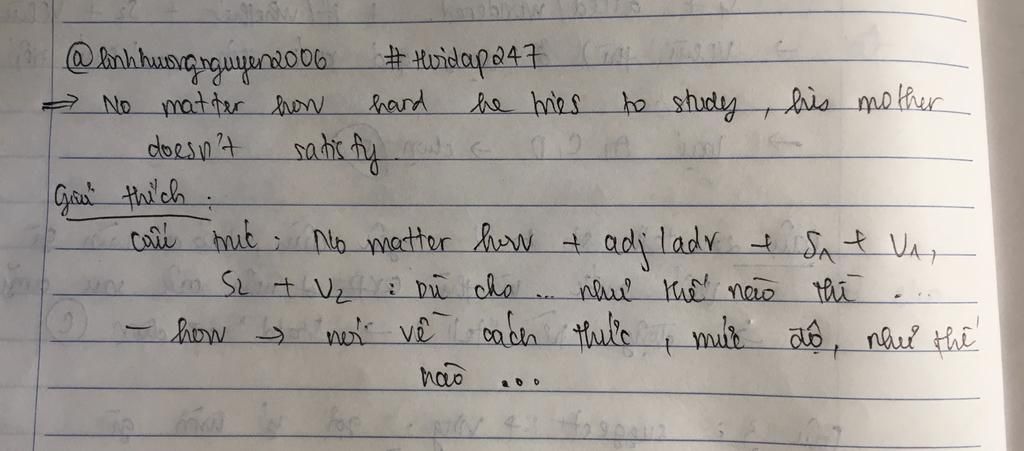 @linhhuongnguyen2006 #hoidap247
=> No matter how hard he tries to study, his mother
doesn't satisfy.
Giải thích :
Cấu trúc : No matter how + adj/adv + S1 + V1,
S2 + V2 : Dù cho ... như thế nào thì ...
- how -> nói về cách thức, mức độ, như thế
nào ...